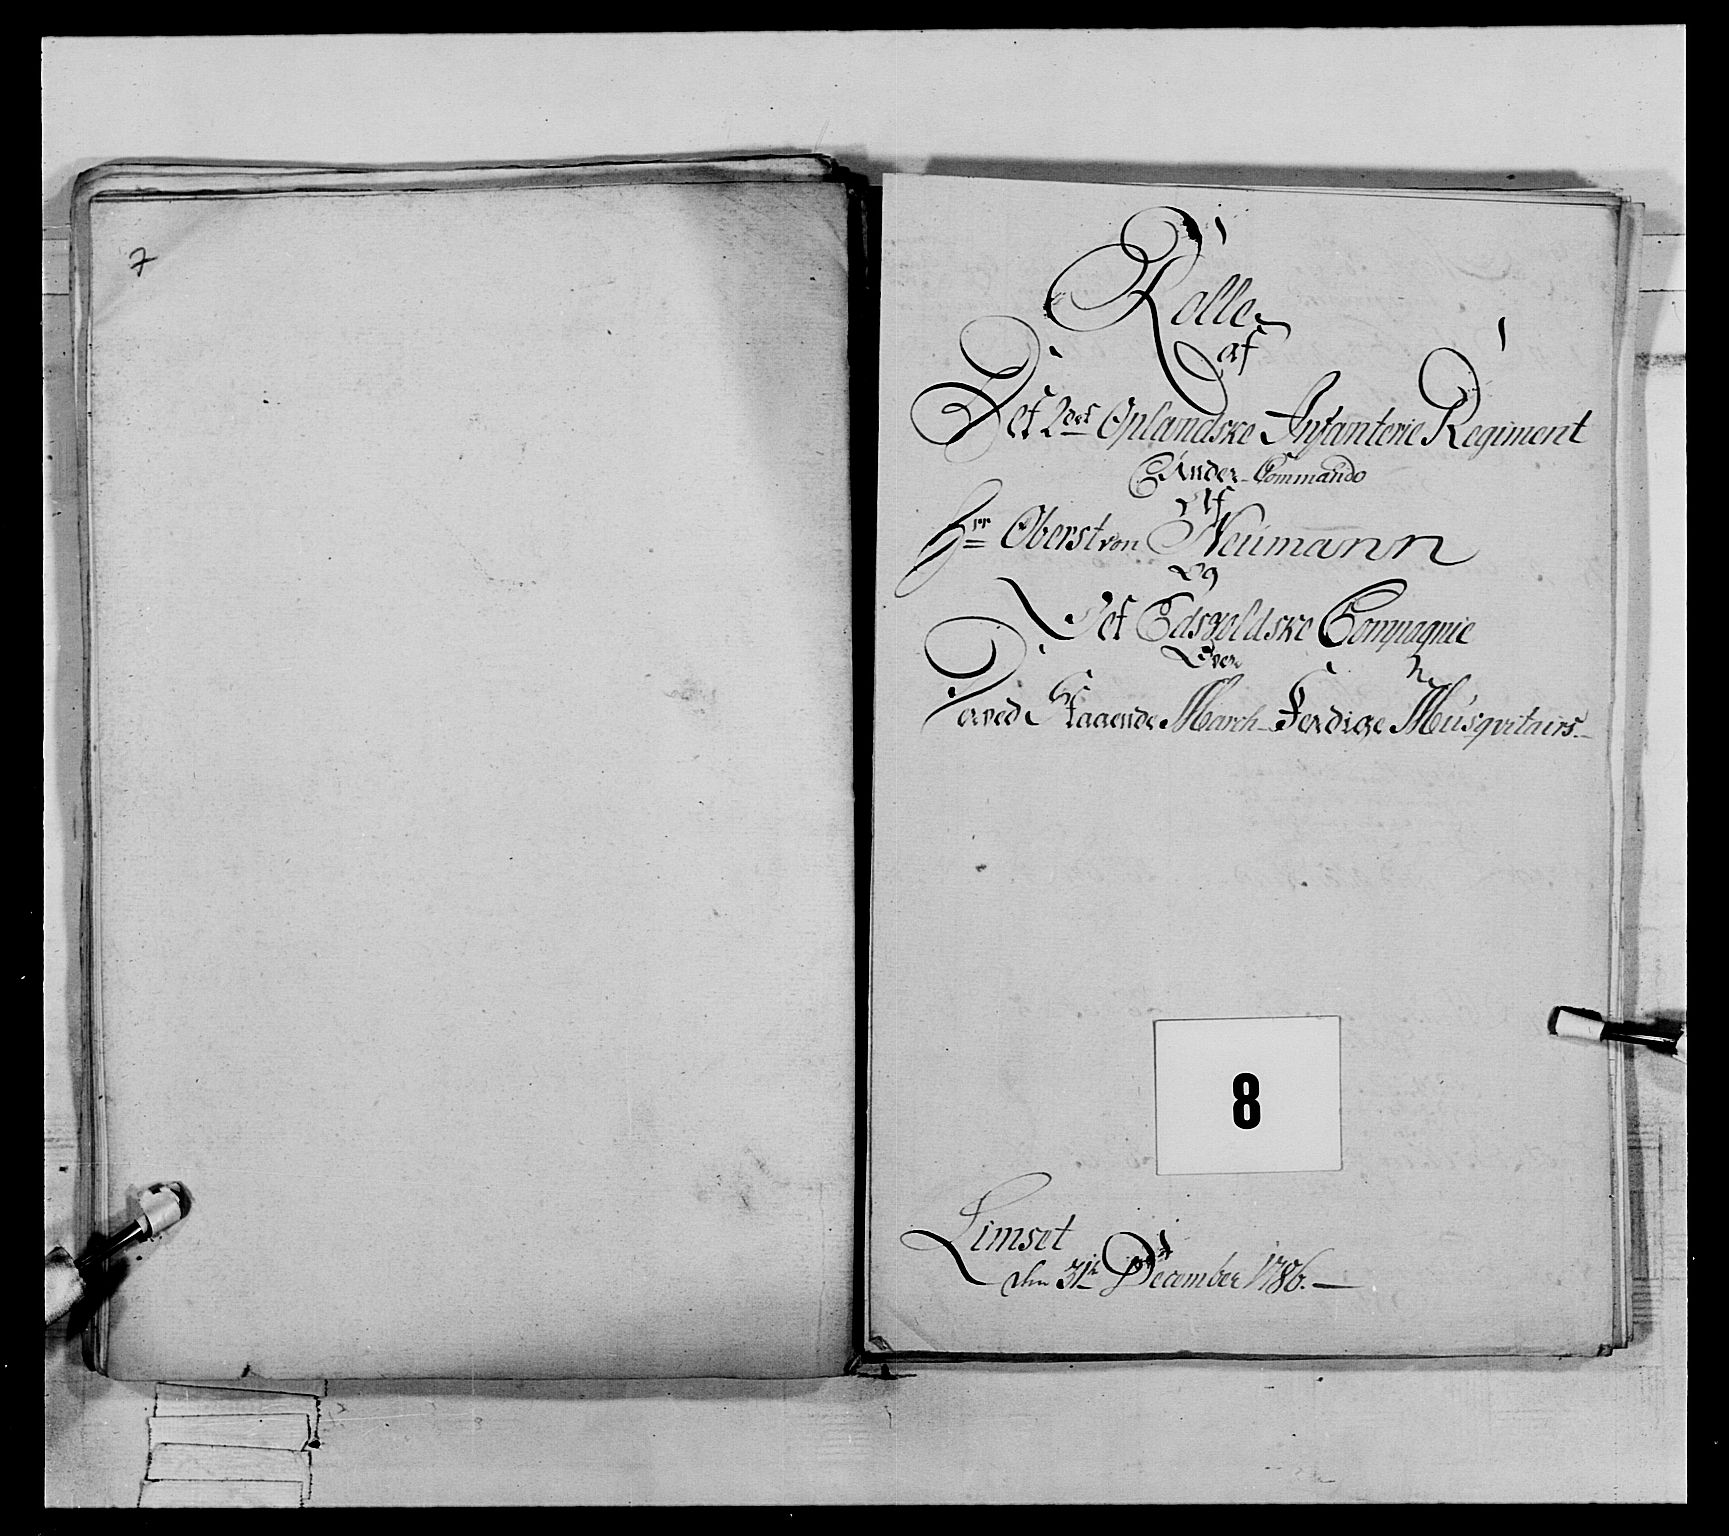 7
Rolle
af
Det 2det Oplandske Infanterie Regiment
Under Commando
Af
Hrr Oberst von Neumann
Og
Det Edsvoldske Compagnie
Over
Derved Staaende March-Ferdige Musqvetairs
8
Limset
den 31te December 1786.